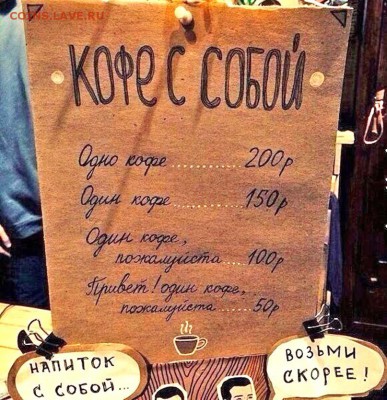 COINS.SU.RU
КОФЕ С СОБОЙ
Одно кофе ............ 200р
Один кофе ............ 150р
Один кофе,
пожалуйста ..... 100р
Привет! один кофе,
пожалуйста ..... 50р
НАПИТОК
С СОБОЙ...
ВОЗЬМИ
СКОРЕЕ!